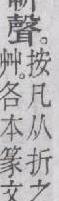 聲。
按凡从折之
艸。各本篆文